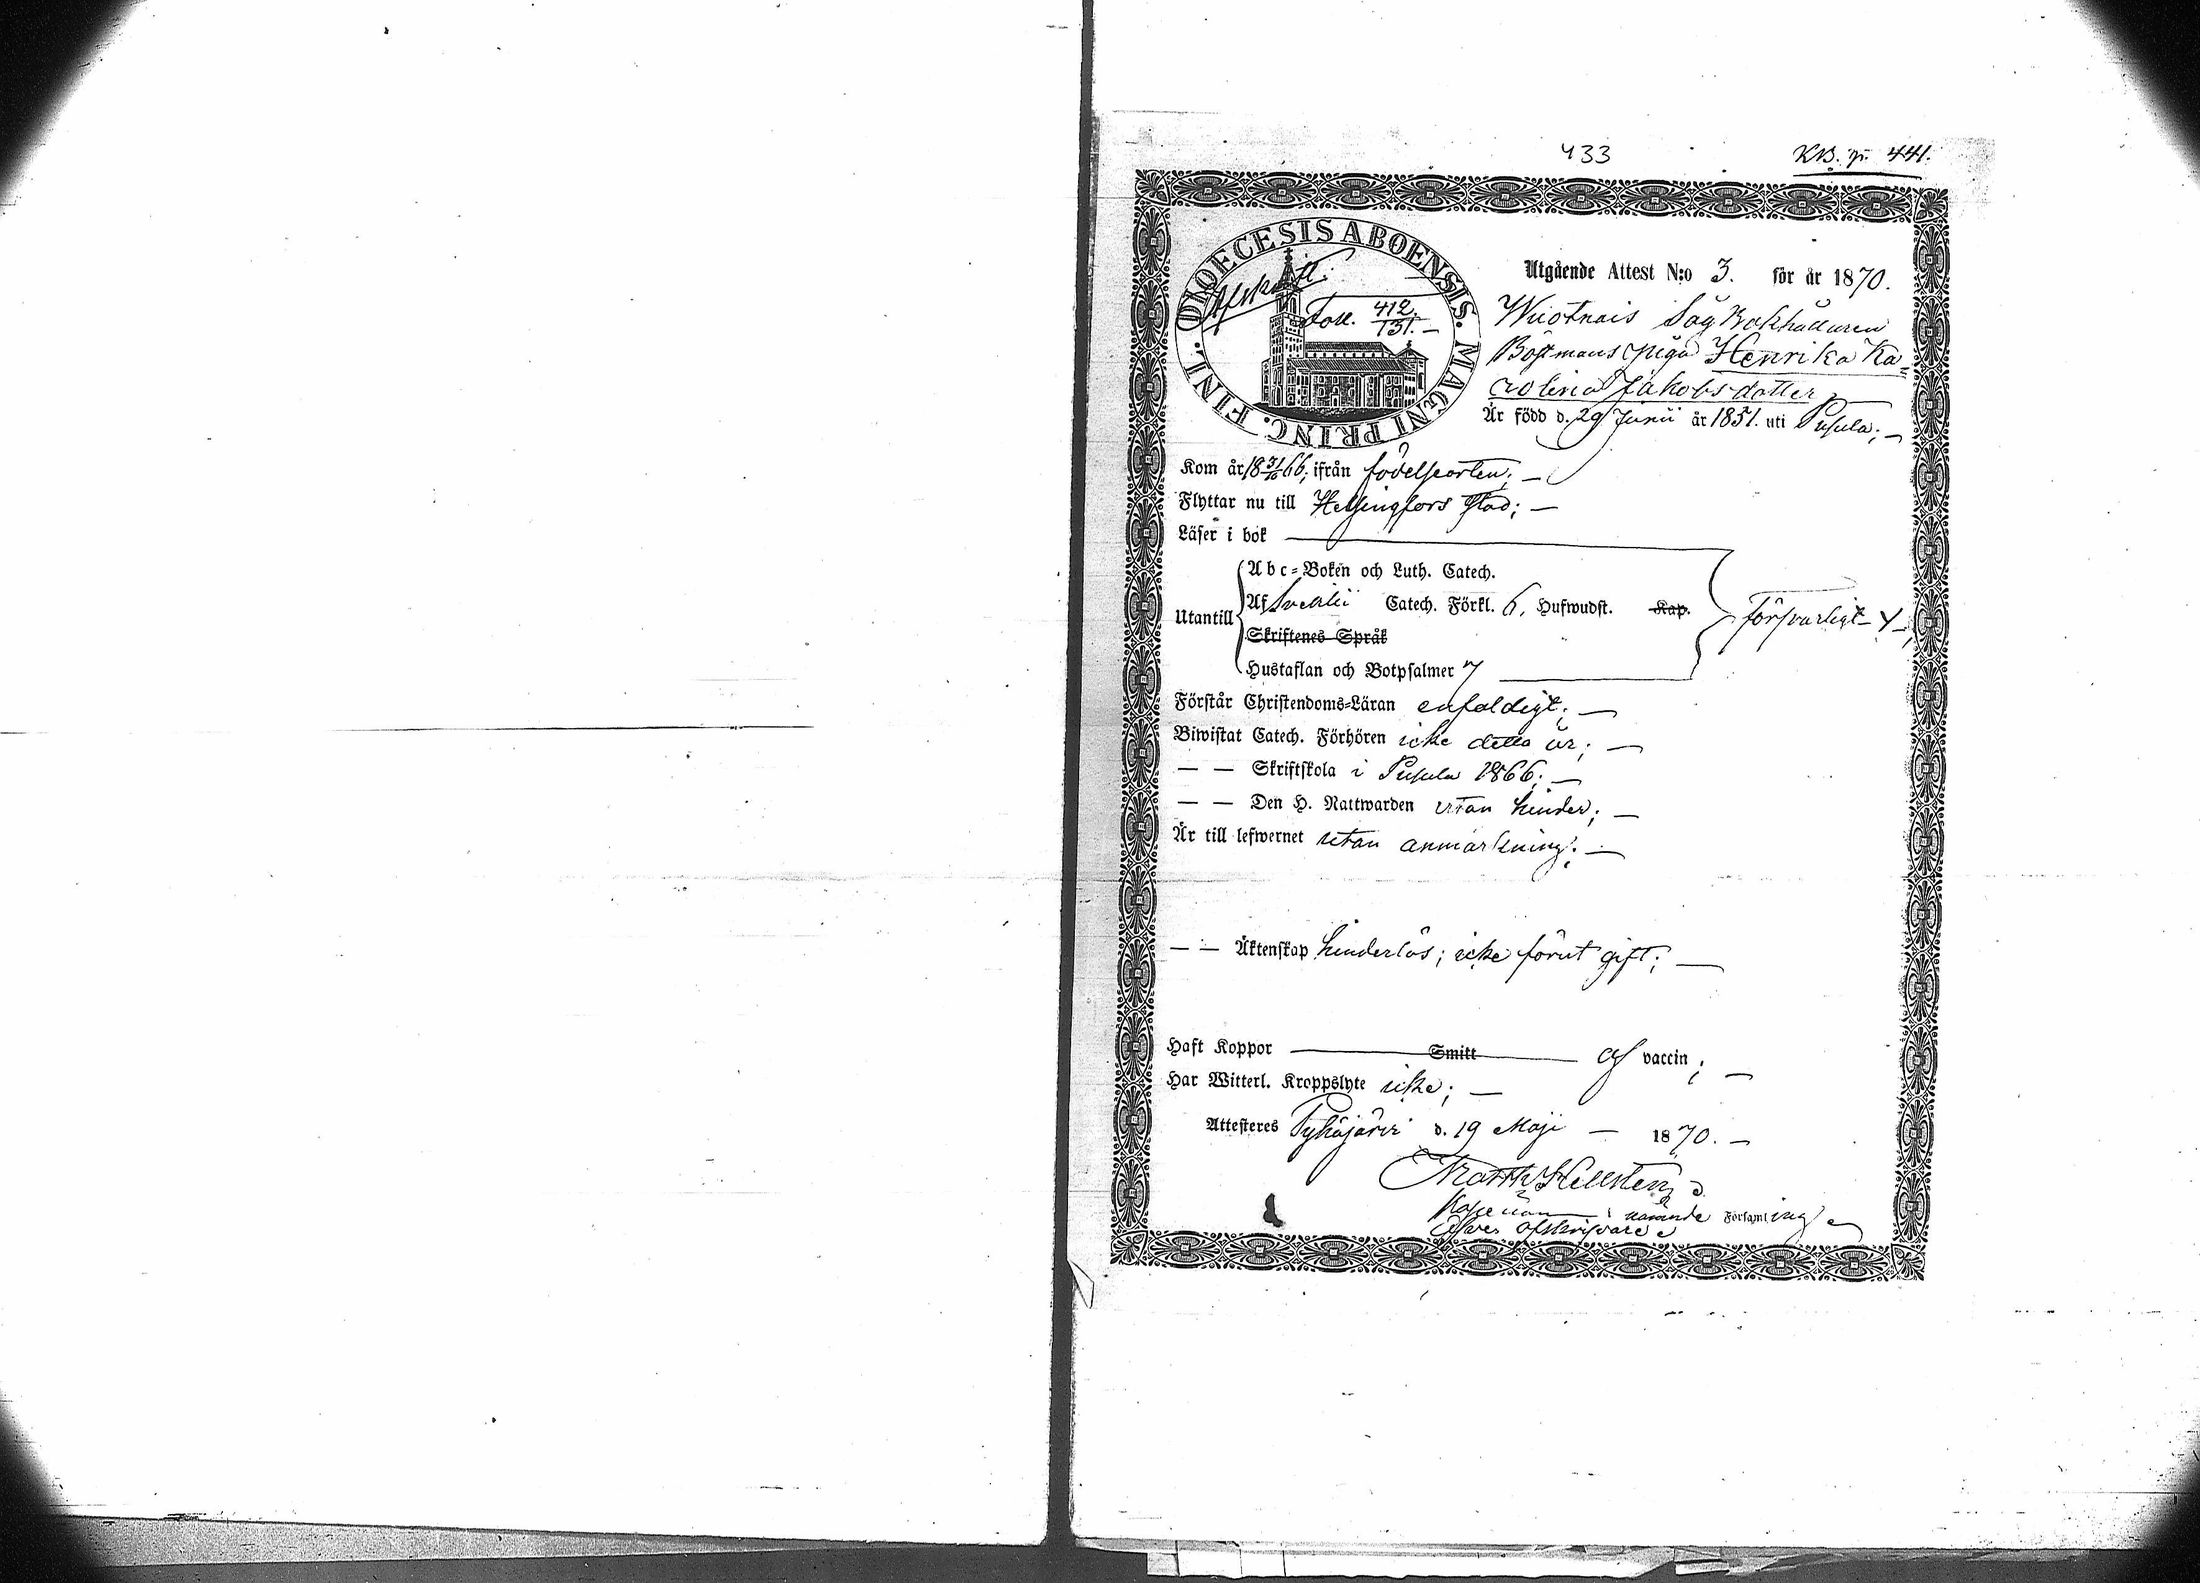 433
KB. p. 441.
DIOECESIS ABOENSIS. MAGNI PRINC. FINL.
Afskrift.
Fol. 412/131. —
Utgående Attest N:o 3. för år 1870.
Såg Bokhållaren
piga Henrika Ka=
rolina Jakobsdotter
Är född d. 29 Junii år 1851. uti Pusula; —
Kom år 18 31/10 66; ifrån födelseorten; —
Flyttar nu till Helsingfors stad; —
Läser i bok
Abc=Boken och Luth. Catech.
Utantill Af Svebilii Catech. Förkl. 6. Hufwudst. Kap.
försvarligt
Skriftenes Språk
Hustaflan och Botpsalmer 7
Förstår Christendoms=Läran enfaldigt; —
Biwistat Catech. Förhören icke detta år; —
— — Skriftskola i Pusula 1866; —
— — Den H. Nattwarden utan hinder; —
Är till lefwernet utan anmärkning; —
— — Äktenskap hinderlös; icke förut gift; —
Haft Koppor Smitt af vaccin; —
Har Witterl. Kroppslyte icke; —
Attesteres Pyhäjärvi d. 19 Maji — 1870. —
Matth. Hellsten
Kapellan i nämnde Församling